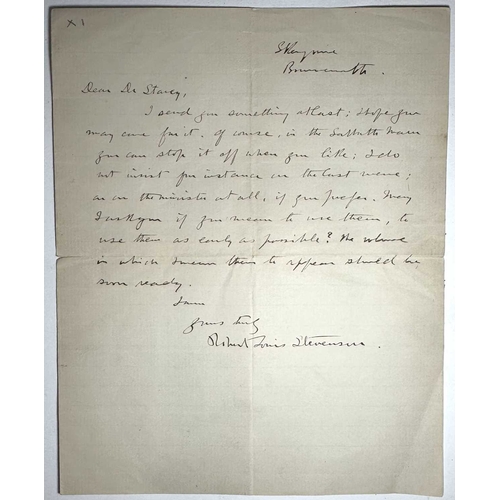 X 1
Skerryvore
Bournemouth.
Dear Dr Stacey,
I send you something at last; I hope you
may care for it. Of course, in the Sabbath Morn
you can stop it off when you like; I do
not insist for instance on the last verse;
or on the minister at all, if you prefer. May
I ask you if you mean to use them, to
use them as early as possible? The volume
in which I mean them to appear should be
soon ready.
I am
yours truly
Robert Louis Stevenson.